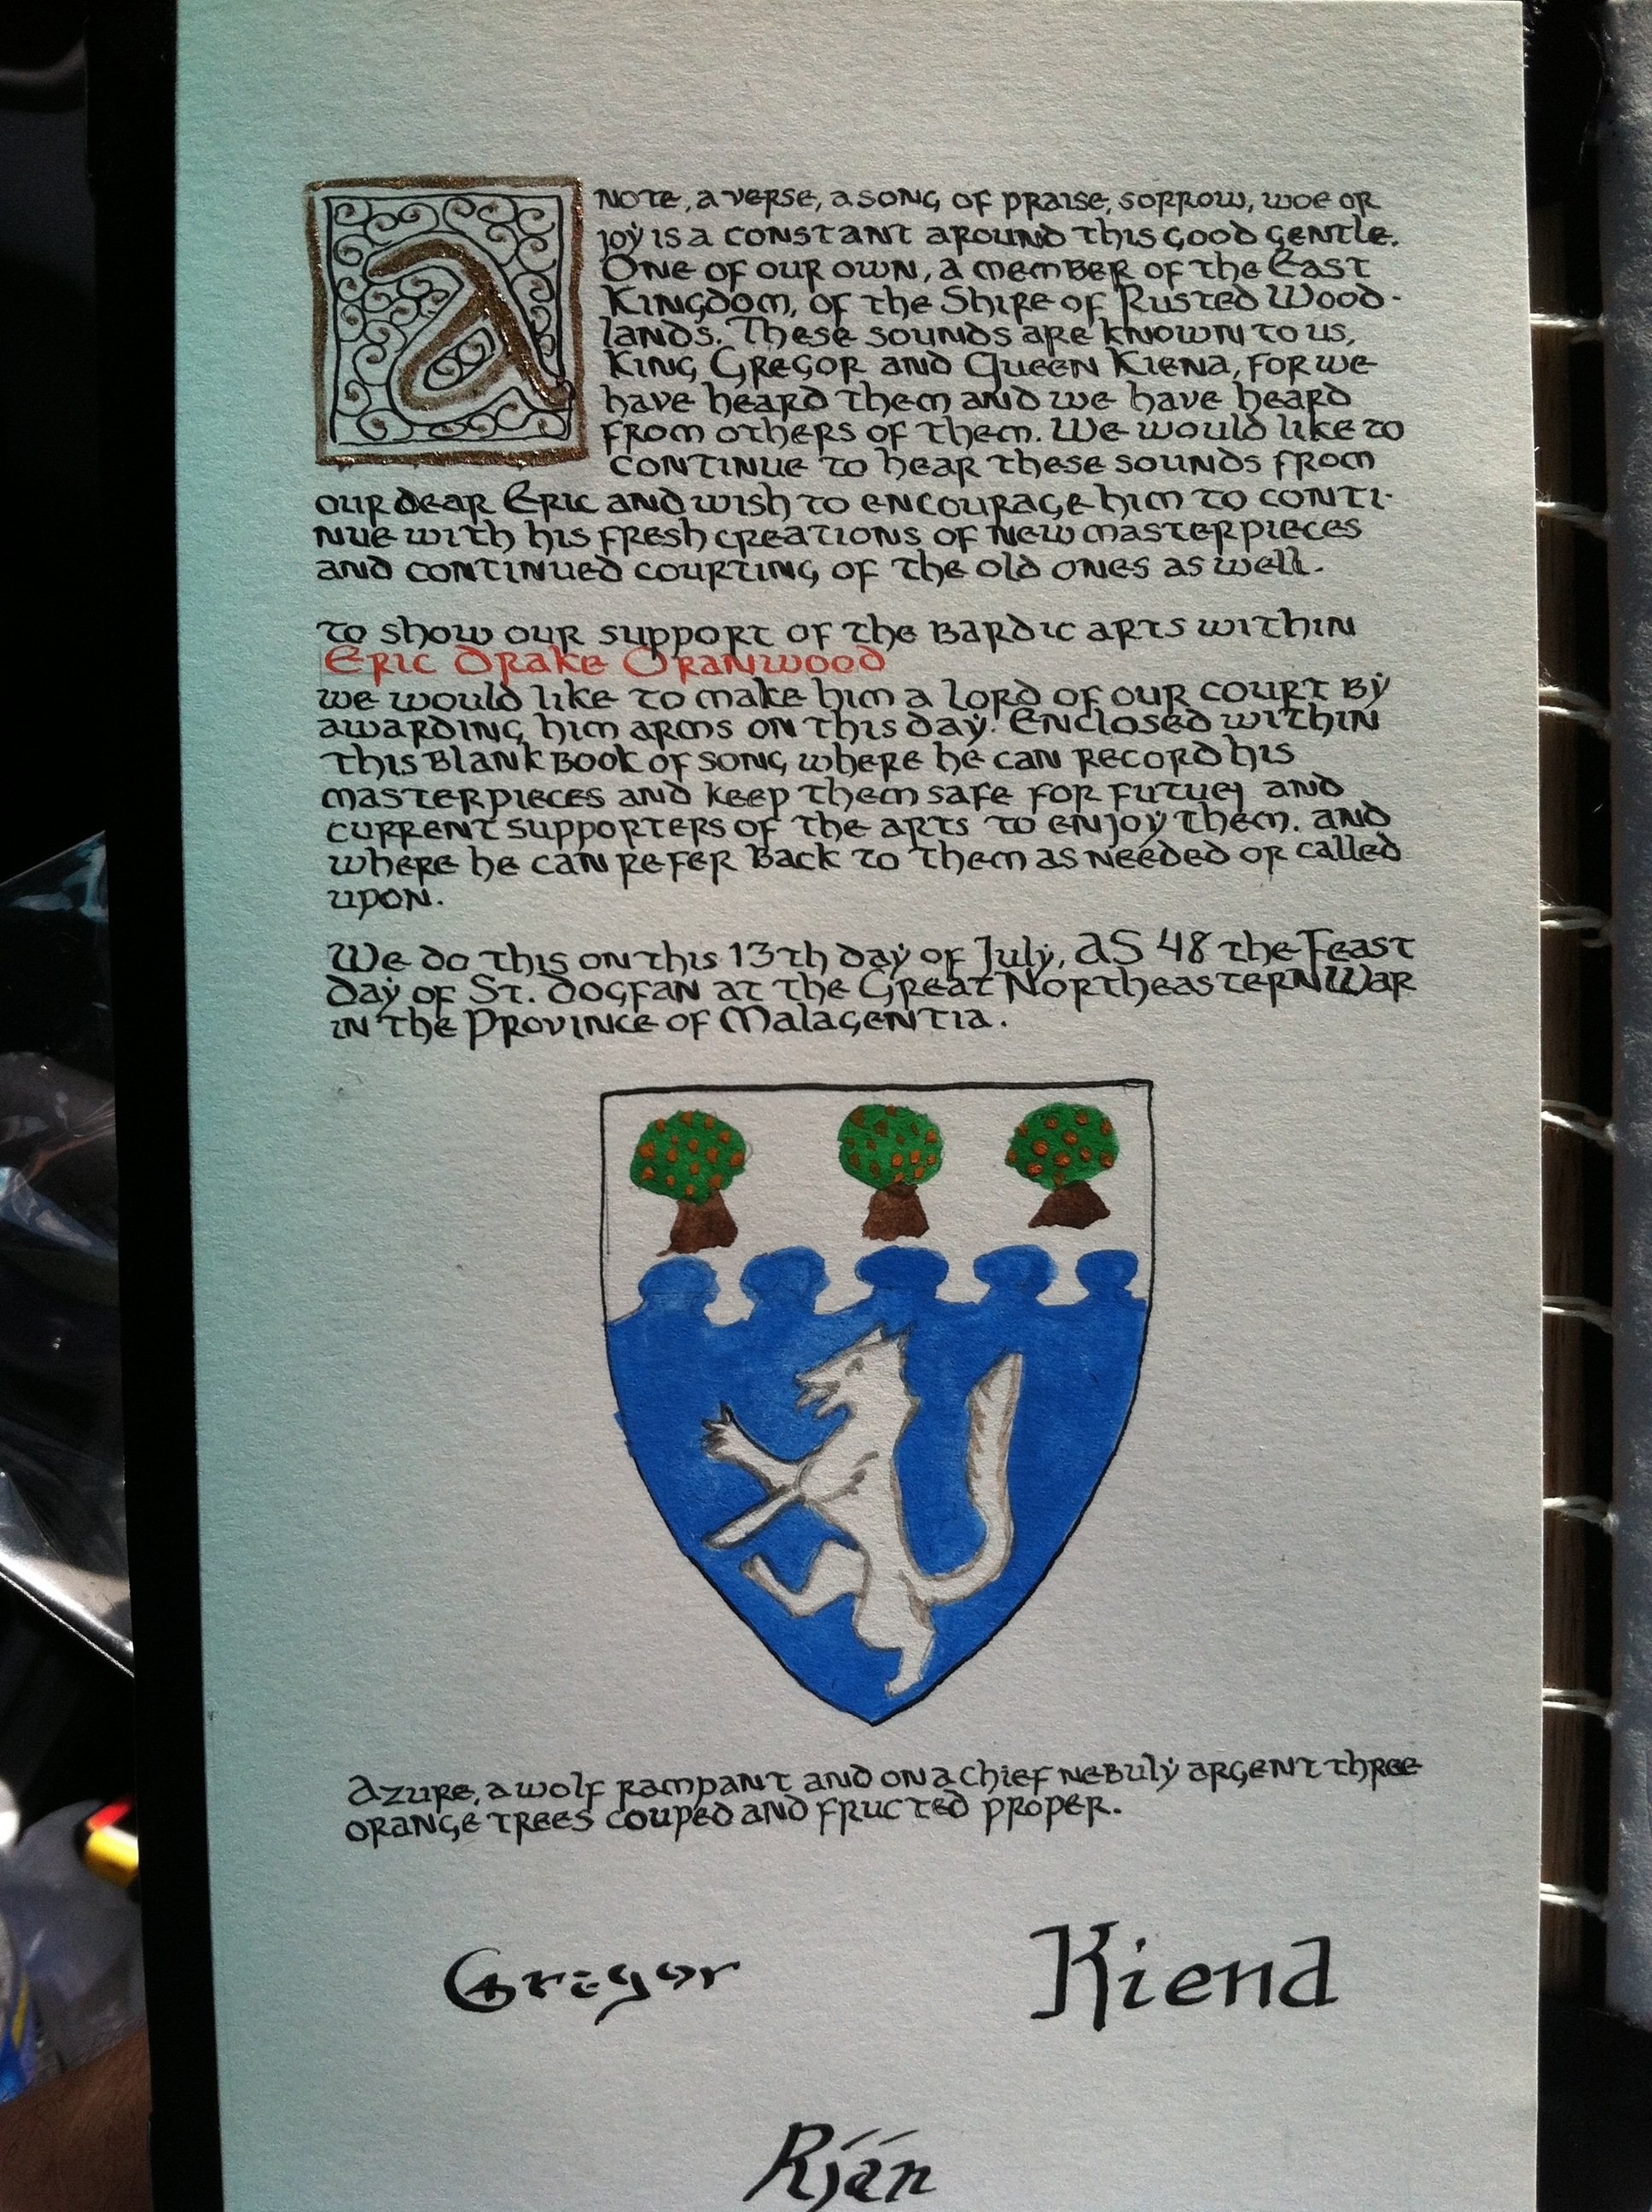 A
NOTE, a verse, a song of praise, sorrow, woe or
joy is a constant around this good gentle.
One of our own, a member of the East
Kingdom, of the Shire of Rusted Wood-
lands. These sounds are known to us,
King Gregor and Queen Kiena, for we
have heard them and we have heard
from others of them. We would like to
continue to hear these sounds from
our dear Eric and wish to encourage him to conti-
nue with his fresh creations of new masterpieces
and continued courting of the old ones as well.
To show our support of the Bardic arts within
Eric Drake Oranwood
we would like to make him a lord of our court by
awarding him arms on this day. Enclosed within
this blank book of song where he can record his
masterpieces and keep them safe for and
current supporters of the arts to enjoy them. and
where he can refer back to them as needed or called
upon.
We do this on this 13th day of July, AS 48 the Feast
Day of St. Dogfan at the Great Northeastern War
in the Province of Malagentia.
Azure, a wolf rampant and on a chief nebuly argent three
orange trees couped and fructed proper.
Gregor Kiena
Rján